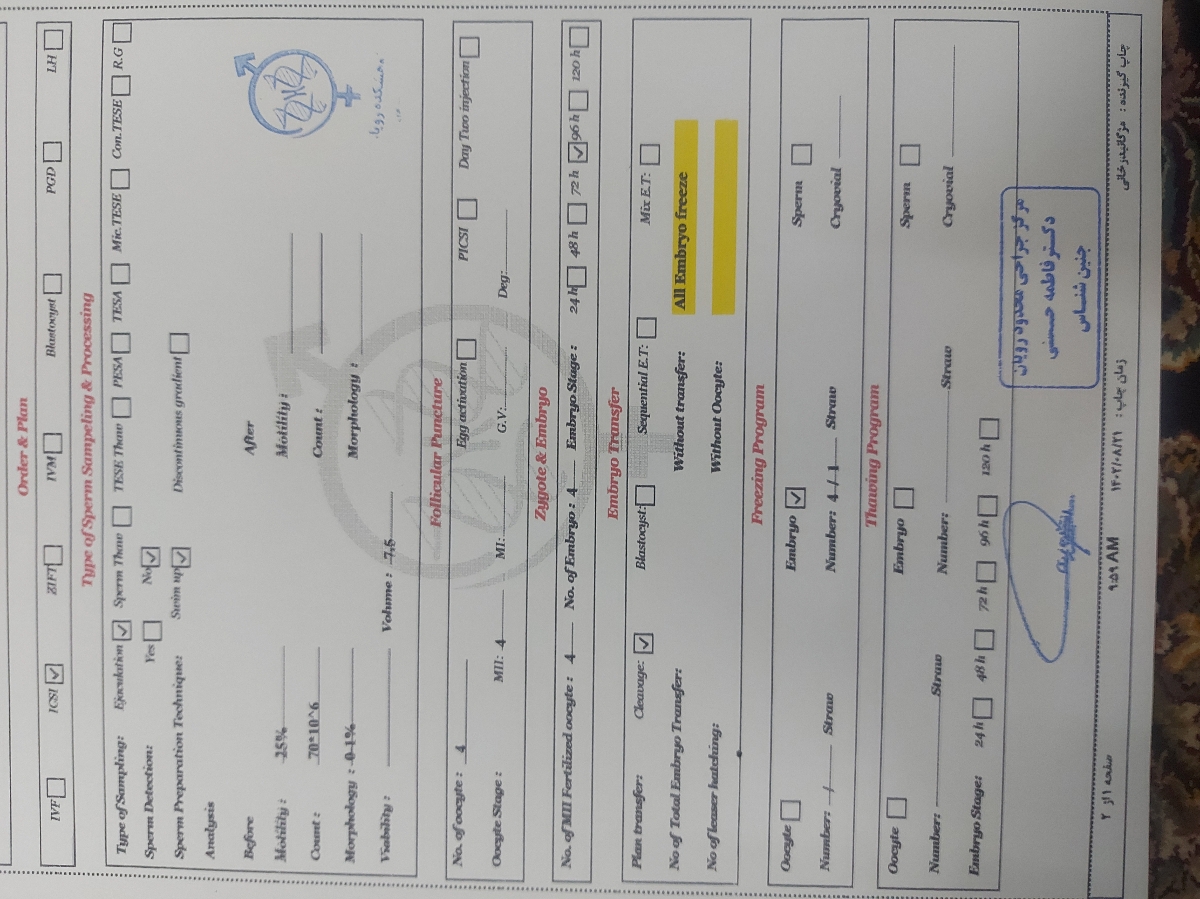 Order & Plan
IVF ICSI ZIFT IVM Blastocyst PGD LH
Type of Sperm Sampeling & Processing
Type of Sampling: Ejaculation Sperm Thaw TESE Thaw PESA TESA Mic.TESE Con.TESE R.G
Sperm Detection: Yes No
Sperm Preparation Technique: Swim up Discontinuous gradient
Analysis
Before After
Motility : 35% Motility :
Count : 70*10^6 Count :
Morphology : 0-1% Morphology :
Viability : Volume : 7.5
پژوهشکده رویان
Follicular Puncture
No. of oocyte : 4 Egg activation PICSI Day Two injection
Oocyte Stage : MII: 4 MI: G.V: Deg:
Zygote & Embryo
No. of MII Fertilized oocyte : 4 No. of Embryo : 4 Embryo Stage : 24 h 48 h 72 h 96 h 120 h
Embryo Transfer
Plan transfer: Cleavage: Blastocyst: Sequential E.T: Mix E.T:
No of Total Embryo Transfer: Without transfer: All Embryo freeze
No of leaser hatching: Without Oocyte:
Freezing Program
Oocyte Embryo Sperm
Number: / Straw Number: 4 / 1 Straw Cryovial
Thawing Program
Oocyte Embryo Sperm
Number: Straw Number: Straw Cryovial
Embryo Stage: 24 h 48 h 72 h 96 h 120 h
مرکز جراحی محدود رویان
دکتر فاطمه حسنی
جنین شناس
صفحه ۱ از ۲ ۹:۵۹ AM ۱۴۰۲/۰۸/۲۱ زمان چاپ : چاپ گیرنده :